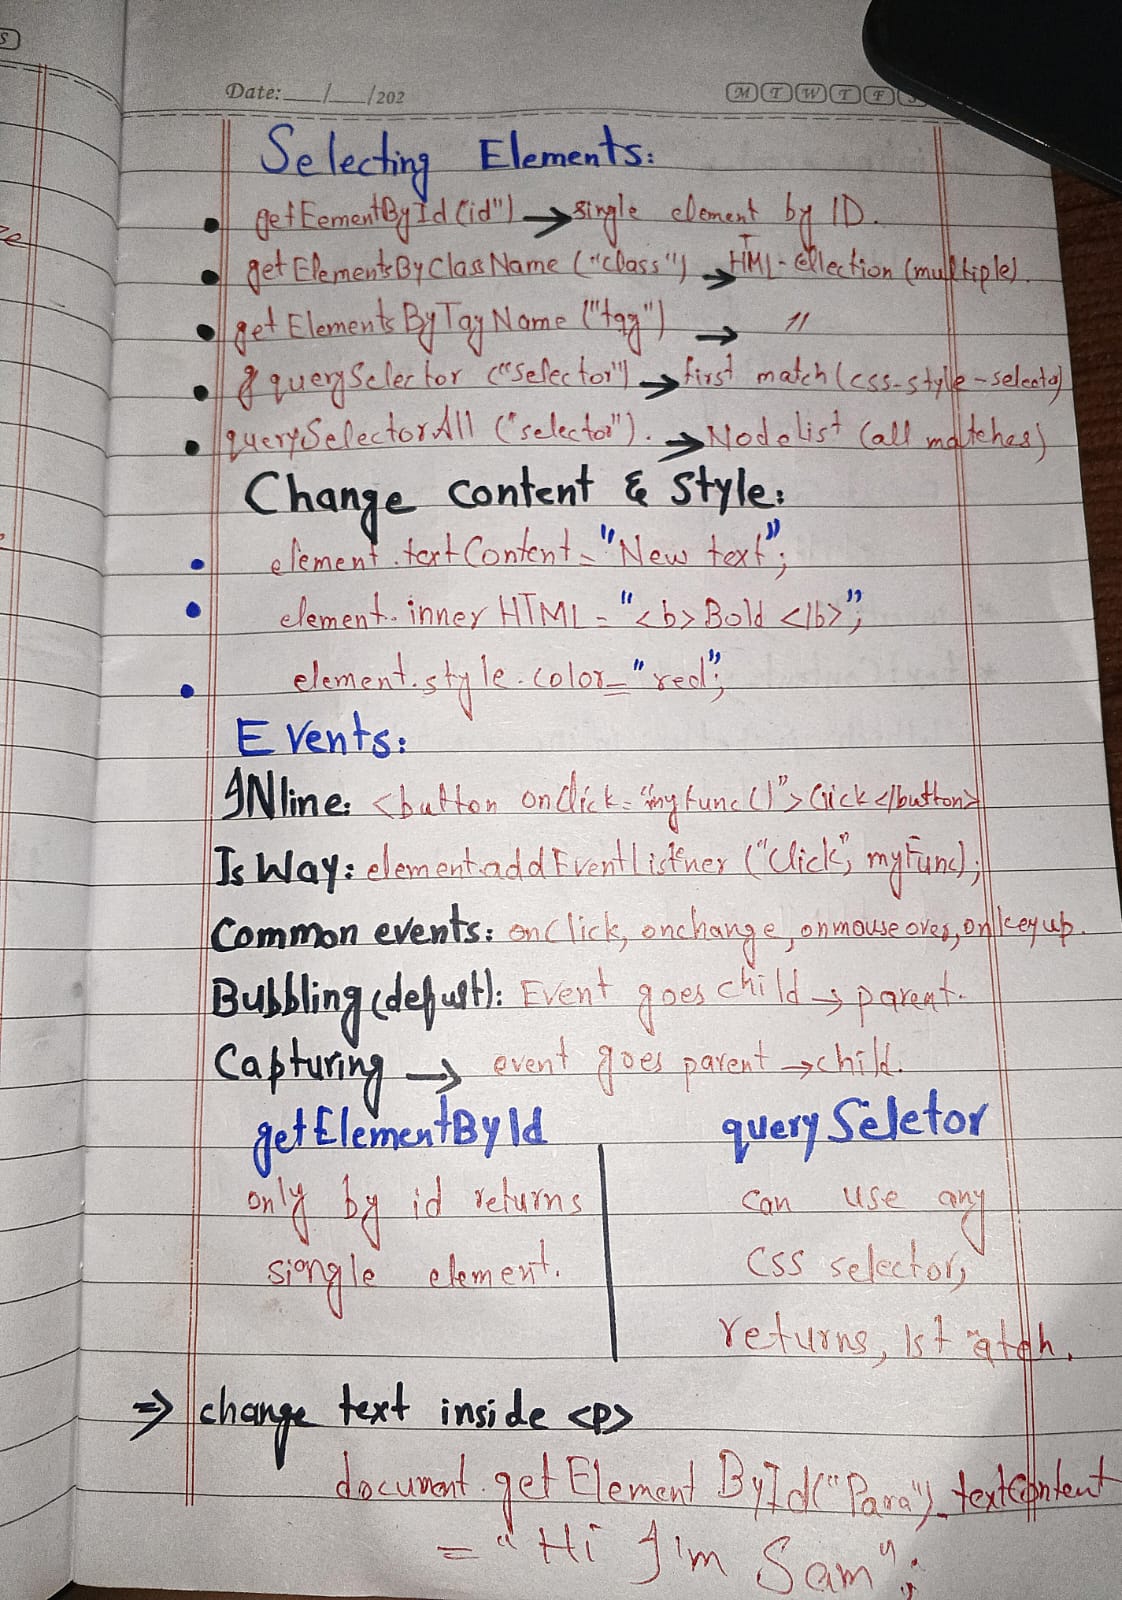 S
Date: __/__/202 M T W T F S
Selecting Elements:
• getEementById (id") → single element by ID.
• getElementsByClassName ("class") → HTML-Collection (multiple).
• getElementsByTagName ("tag") → "
• querySelector ("selector") → first match (css-style-selector)
• querySelectorAll ("selector"). → Nodelist (all matches)
Change content & Style:
• element.textContent = "New text";
• element.innerHTML = "<b>Bold </b>";
• element.style.color = "red";
Events:
INline: <button onclick="myfunc()">Click</button>
Js Way: element.addEventListener ("Click", myFunc);
Common events: onclick, onchange, onmouseover, onkeyup.
Bubbling (defult): Event goes child → parent.
Capturing → event goes parent → child.
getElementById querySeletor
only by id returns can use any
siongle element. CSS selector,
returns, 1st match.
⇒ change text inside <p>
document.getElementById("Para").textContent
= "Hi I'm Sam";